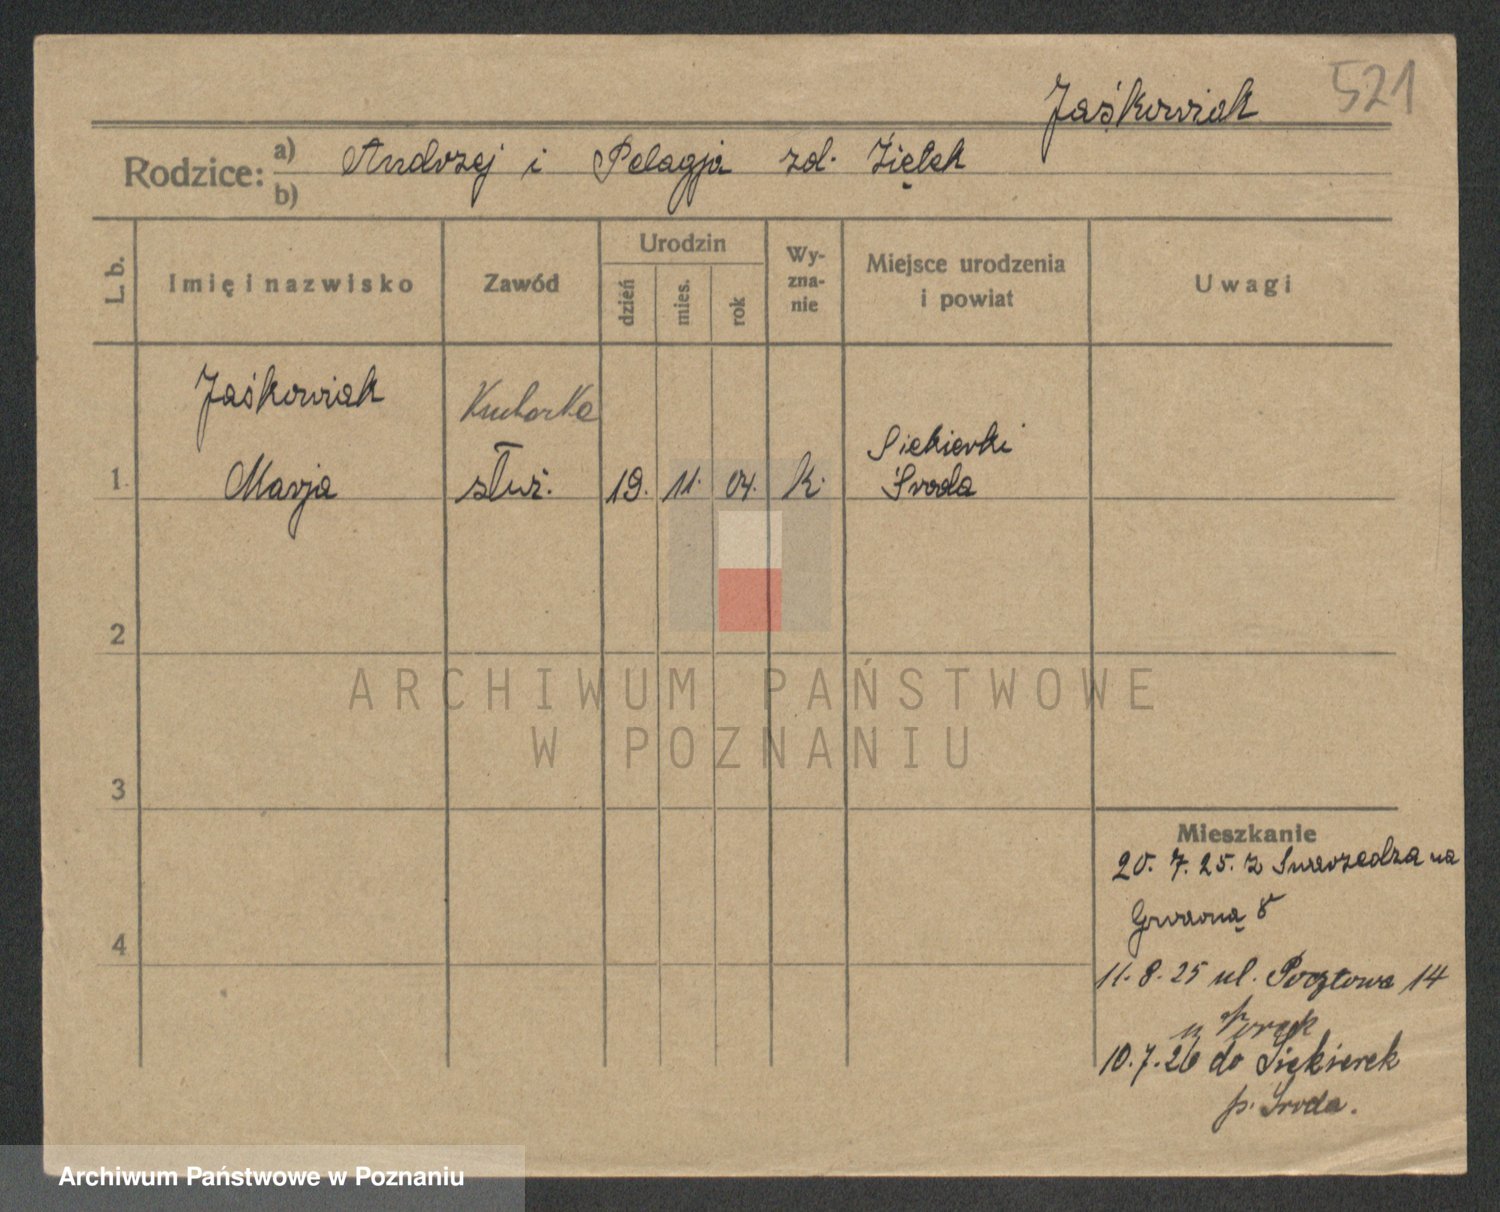 521
Jaśkowiak
Rodzice: a) Andrzej i Pelagja zd. Ziętek
b)
L. b.
Imię i nazwisko
Zawód
Urodzin
dzień
mies.
rok
Wy-
zna-
nie
Miejsce urodzenia
i powiat
Uwagi
Jaśkowiak
Kucharka
Siekierki
1. Marja służ. 19. 11. 04. k. Środa
2
3
4
Mieszkanie
20. 7. 25. z Swarzędza na
Gwarną 8
11. 8. 25 ul. Pocztowa 14
u
10. 7. 26 do Siekierek
p. Środa.
ARCHIWUM PAŃSTWOWE
W POZNANIU
Archiwum Państwowe w Poznaniu